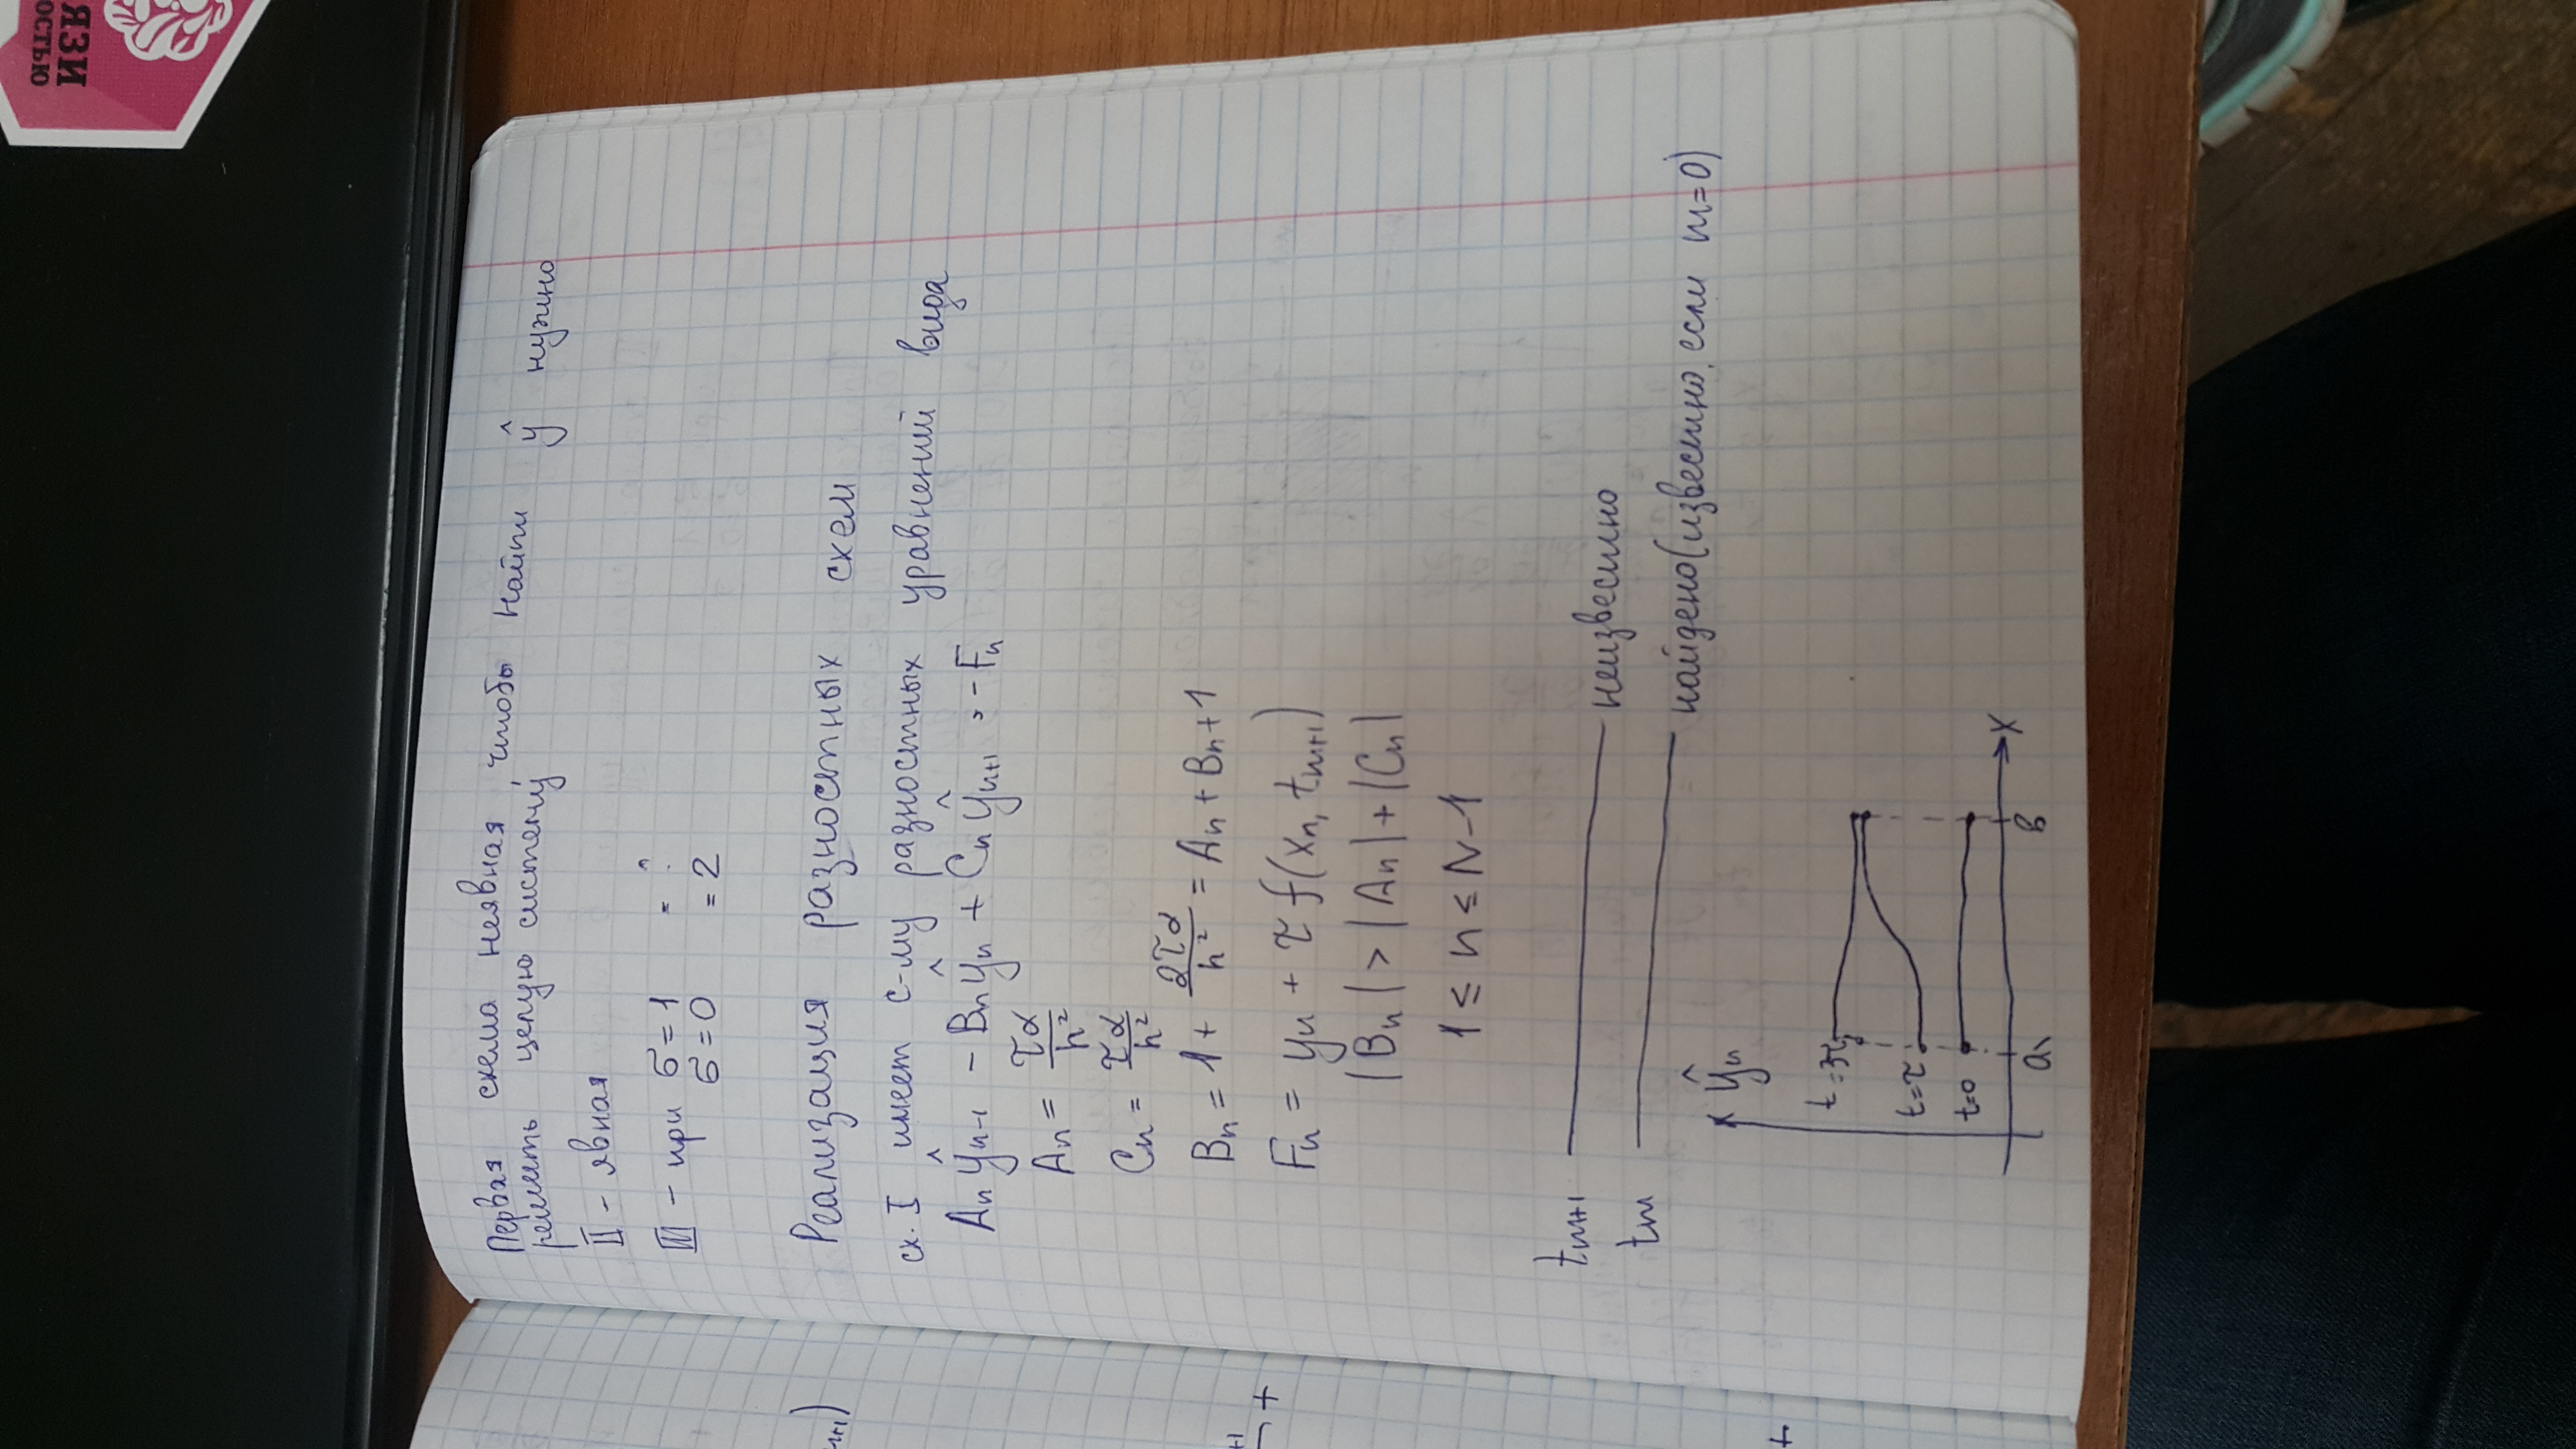 Первая схема неявная, чтобы найти ŷ нужно
решить целую систему
II - явная
III - при σ = 1 " :
σ = 0 = 2
Реализация разностных схем
сх. I имеет с-му разностных уравнений вида
Aₙŷₙ₋₁ - Bₙŷₙ + Cₙŷₙ₊₁ = -Fₙ
Aₙ = τα/h²
Cₙ = τα/h²
Bₙ = 1 + 2τα/h² = Aₙ + Bₙ + 1
Fₙ = yₙ + τ f(xₙ, tₘ₊₁)
|Bₙ| > |Aₙ| + |Cₙ|
1 ≤ n ≤ N-1
tₘ₊₁ неизвестно
tₘ найдено (известно, если m=0)
ŷₙ
t=τ
t=0
a
b
x
ЯЗИ
ОСТЬЮ